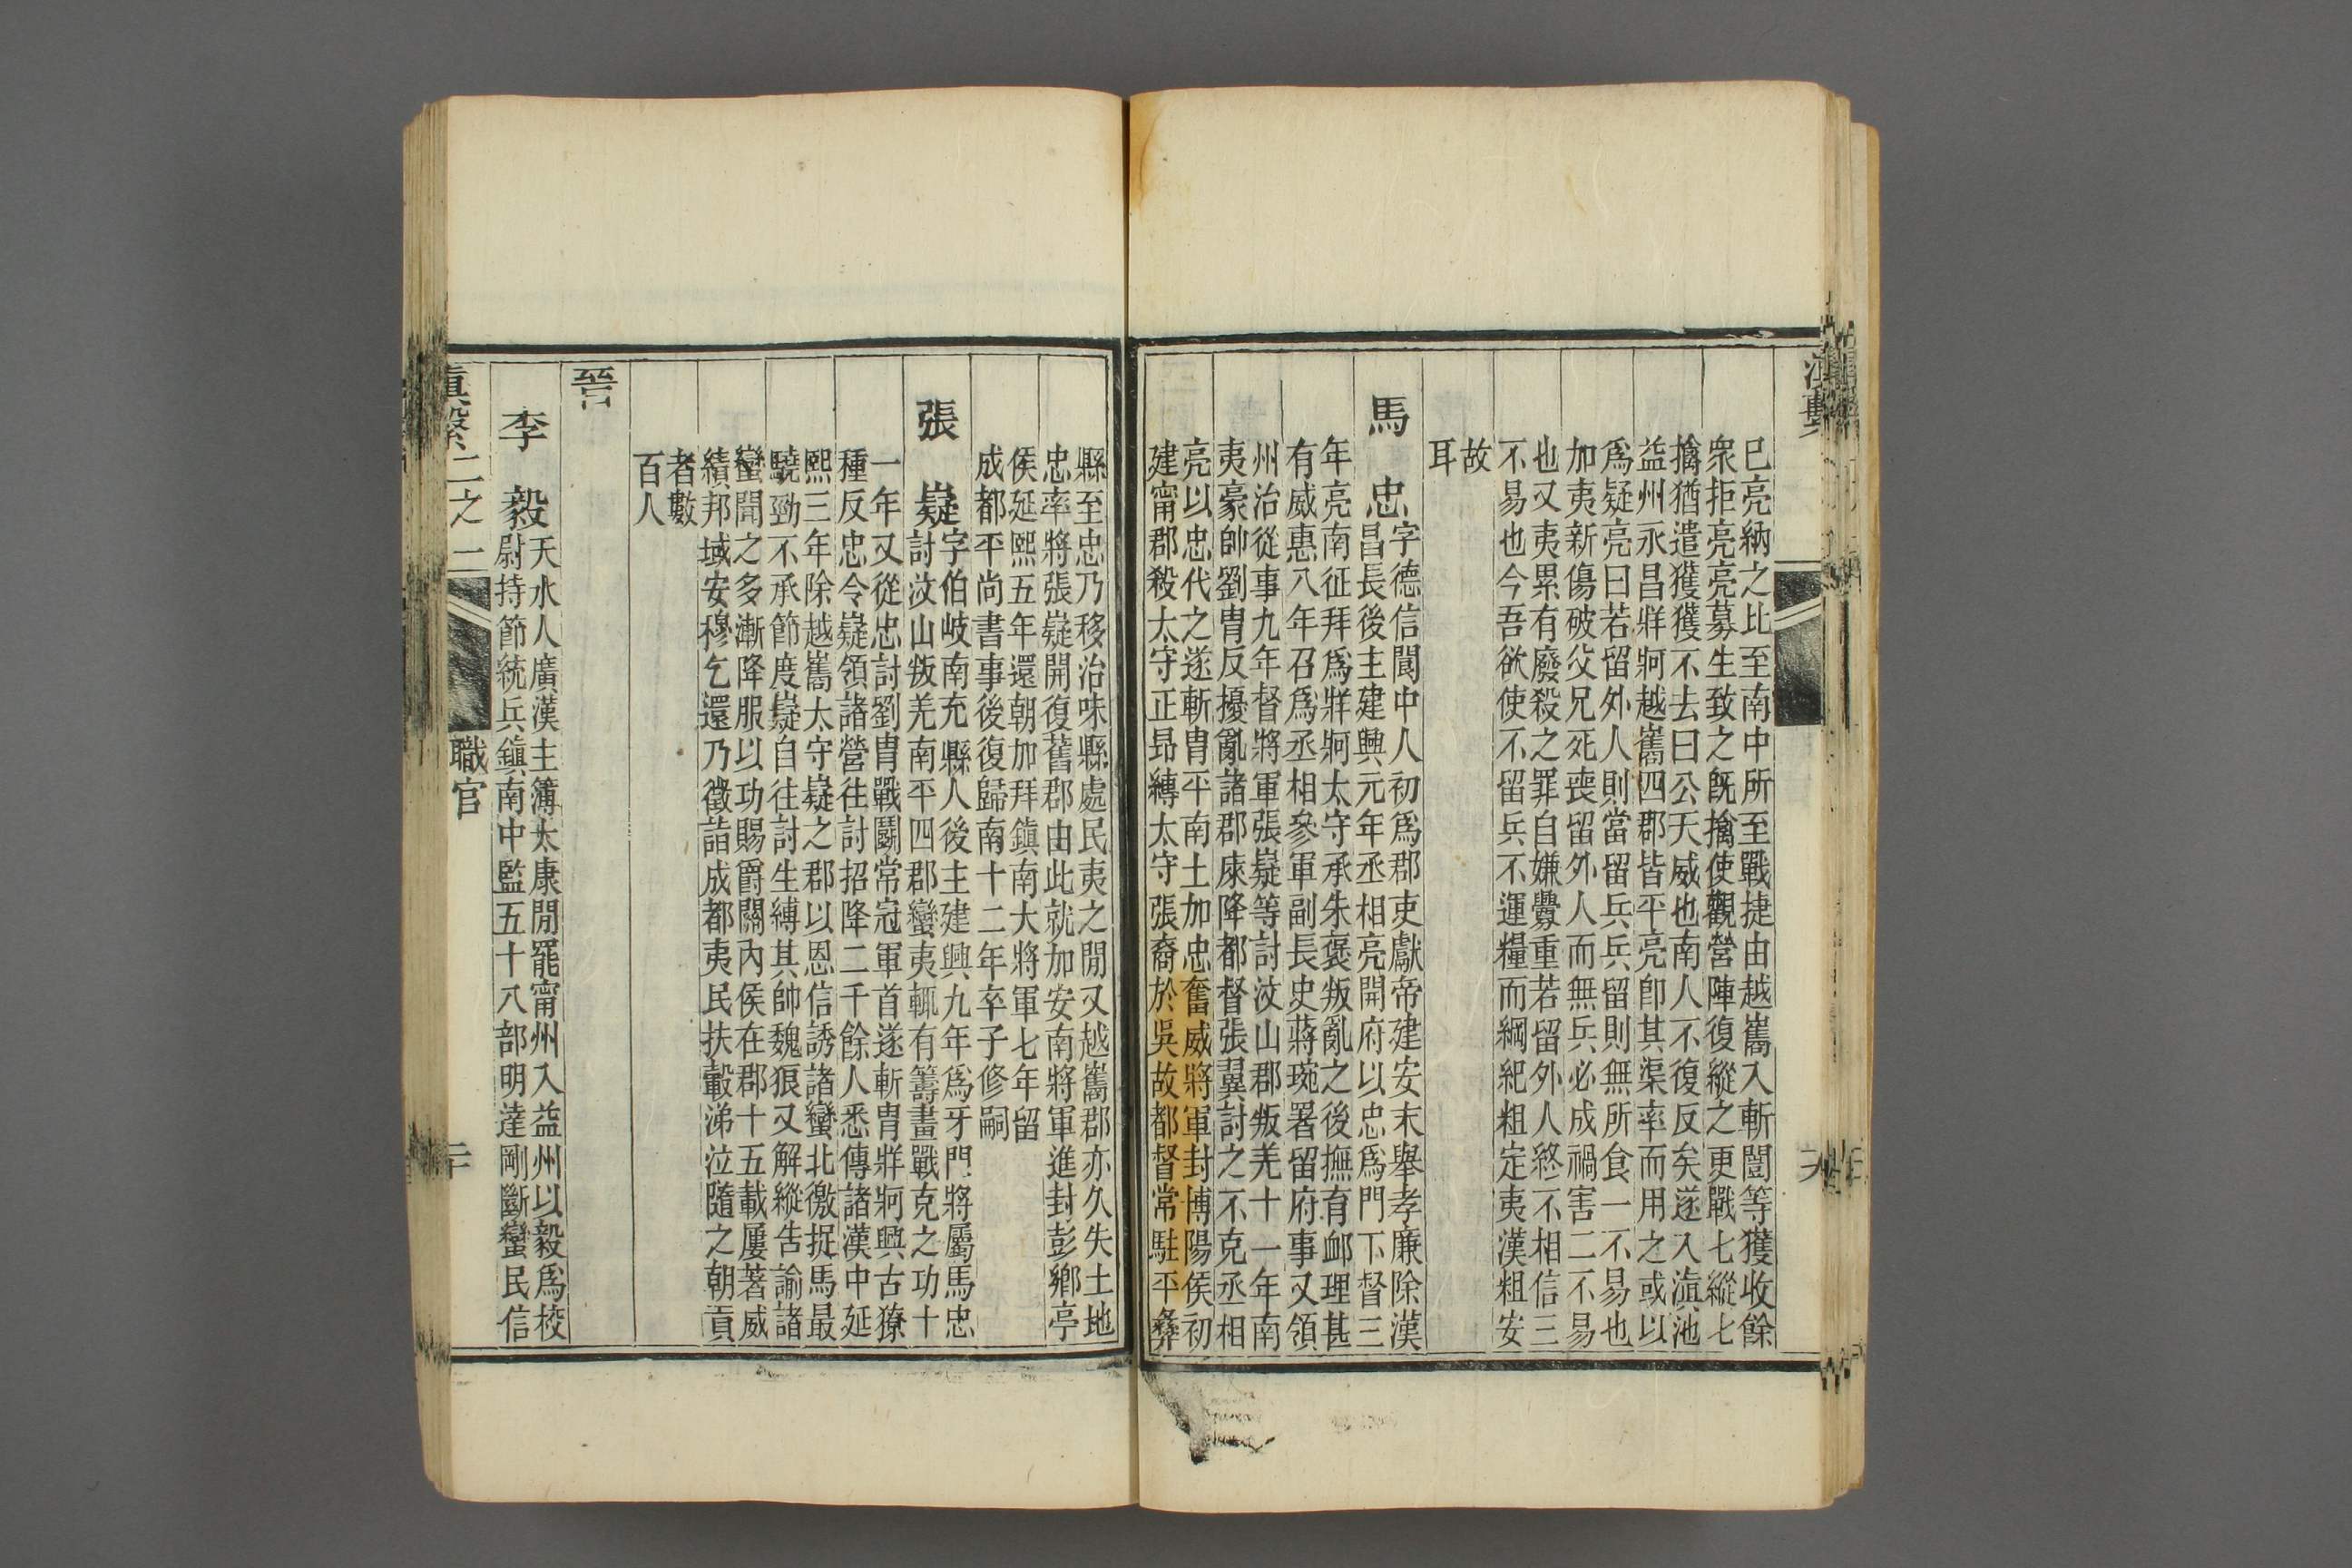 已亮納之比至南中所至戰捷由越嶲入斬闓等獲收餘
衆拒亮亮募生致之旣擒使觀營陣復縱之更戰七縱七
擒猶遣獲獲不去曰公天威也南人不復反矣遂入滇池
益州永昌牂牁越嶲四郡皆平亮卽其渠率而用之或以
爲疑亮曰若留外人則當留兵兵留則無所食一不易也
加夷新傷破父兄死喪留外人而無兵必成禍害二不易
也又夷累有廢殺之罪自嫌釁重若留外人終不相信三
不易也今吾欲使不留兵不運糧而綱紀粗定夷漢粗安
故
耳
馬忠
字德信閬中人初爲郡吏獻帝建安末舉孝廉除漢
昌長後主建興元年丞相亮開府以忠爲門下督三
年亮南征拜爲牂牁太守承朱褒叛亂之後撫育䘏理甚
有威惠八年召爲丞相參軍副長史蔣琬署留府事又領
州治從事九年督將軍張嶷等討汶山郡叛羌十一年南
夷豪帥劉胄反擾亂諸郡庲降都督張翼討之不克丞相
亮以忠代之遂斬胄平南土加忠奮威將軍封博陽侯初
建甯郡殺太守正昂縛太守張裔於吳故都督常駐平彝
縣至忠乃移治味縣處民夷之閒又越嶲郡亦久失土地
忠率將張嶷開復舊郡由此就加安南將軍進封彭鄉亭
侯延熙五年還朝加拜鎮南大將軍七年留
成都平尚書事後復歸南十二年卒子修嗣
張嶷
字伯岐南充縣人後主建興九年爲牙門將屬馬忠
討汶山叛羌南平四郡蠻夷輒有籌畫戰克之功十
一年又從忠討劉胄戰鬭常冠軍首遂斬胄牂牁興古獠
種反忠令嶷領諸營往討招降二千餘人悉傳諸漢中延
熙三年除越嶲太守嶷之郡以恩信誘諸蠻北徼捉馬最
驍勁不承節度嶷自往討生縛其帥魏狼又解縱告諭諸
蠻聞之多漸降服以功賜爵關內侯在郡十五載屢著威
績邦域安穆乞還乃徵詣成都夷民扶轂涕泣隨之朝貢
者數
百人
晉
李毅
天水人廣漢主簿太康閒罷甯州入益州以毅爲校
尉持節統兵鎮南中監五十八部明達剛斷蠻民信
滇繫二之二
職官